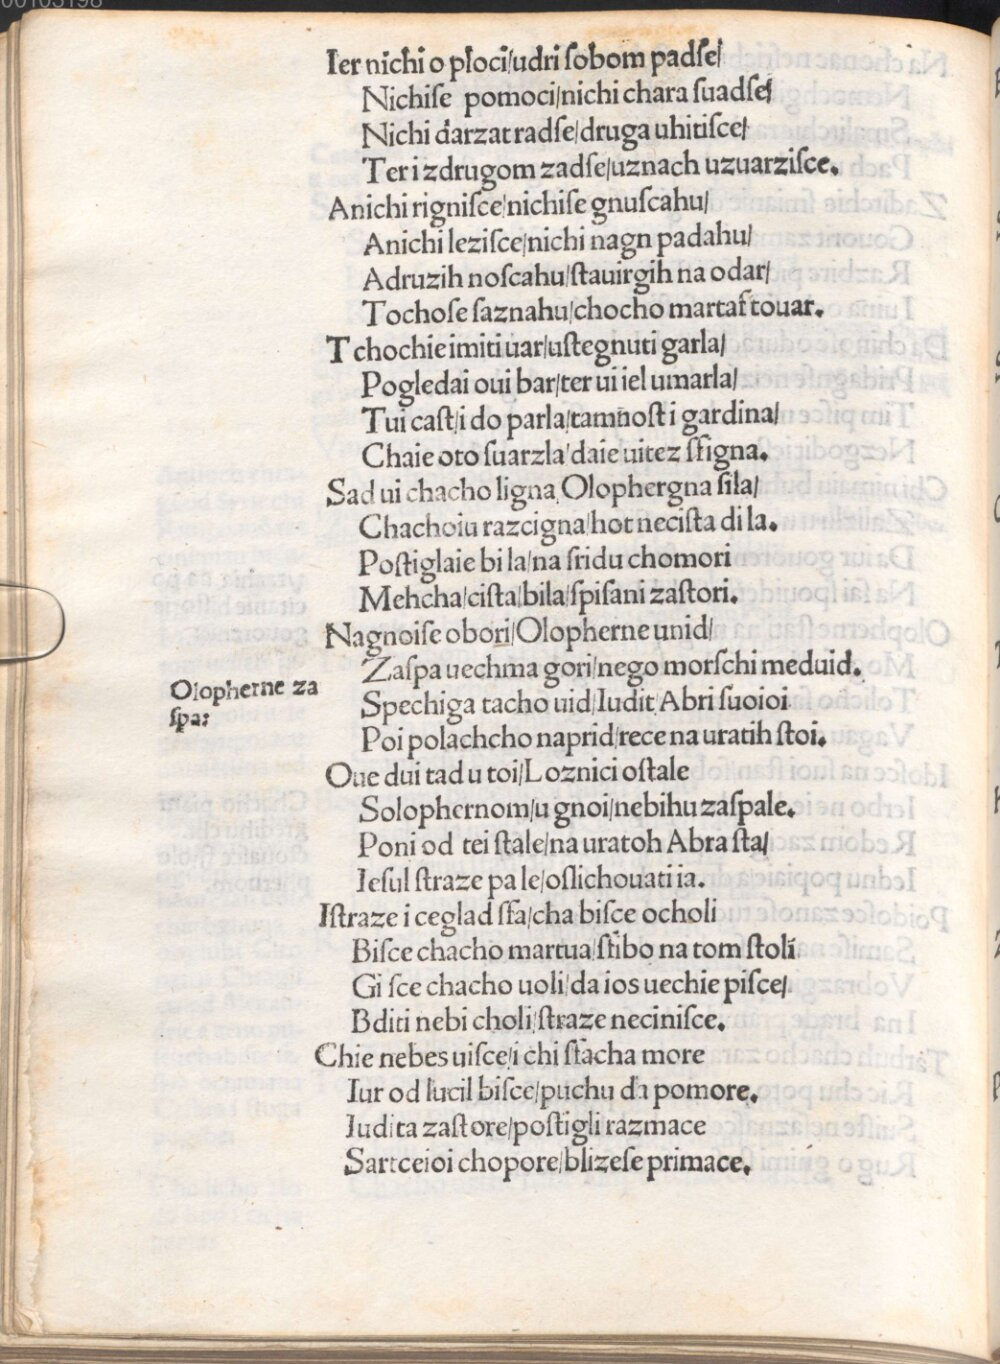 00103198
Ier nichi o ploci/udri ſobom padſe/
Nichiſe pomoci/nichi chara ſuadſe/
Nichi darzat radſe/druga uhitiſce/
Ter i zdrugom zadſe/uznach uzuarziſce.
Anichi rigniſce/nichiſe gnuſcahu/
Anichi leziſce/nichi nagn padahu/
Adruzih noſcahu/ſtauirgih na odar/
Tochoſe ſaznahu/chocho martaſ touar.
Tchochie imiti uar/uſtegnuti garla/
Pogledai oui bar/ter ui iel umarla/
Tui caſt/i do parla/tamnoſt i gardina/
Chaie oto ſuarzla/daie uitez ſſigna.
Sad ui chacho ligna Olophergna ſila/
Chachoiu razcigna/hot neciſta di la.
Poſtiglaie bi la/na ſridu chomori
Mehcha/ciſta/bila/ſpiſani zaſtori.
Nagnoiſe obori/Olopherne unid/
Zaſpa uechma gori/nego morſchi meduid.
Olopherne za
ſpa:
Spechiga tacho uid/Iudit Abri ſuoioi
Poi polachcho naprid/rece na uratih ſtoi.
Oue dui tad u toi/Loznici oſtale
Solophernom/u gnoi/nebihu zaſpale.
Poni od tei ſtale/na uratoh Abra ſta/
Ieſul ſtraze pa le/oſlichouati ia.
Iſtraze i ceglad ſſa/cha biſce ocholi
Biſce chacho martua/ſtibo na tom ſtoli
Gi ſce chacho uoli/da ios uechie piſce/
Bditi nebi choli/ſtraze neciniſce.
Chie nebes uiſce/i chi ſtacha more
Iur od lucil biſce/puchu da pomore.
Iudita zaſtore/poſtigli razmace
Sartceioi chopore/blizeſe primace.